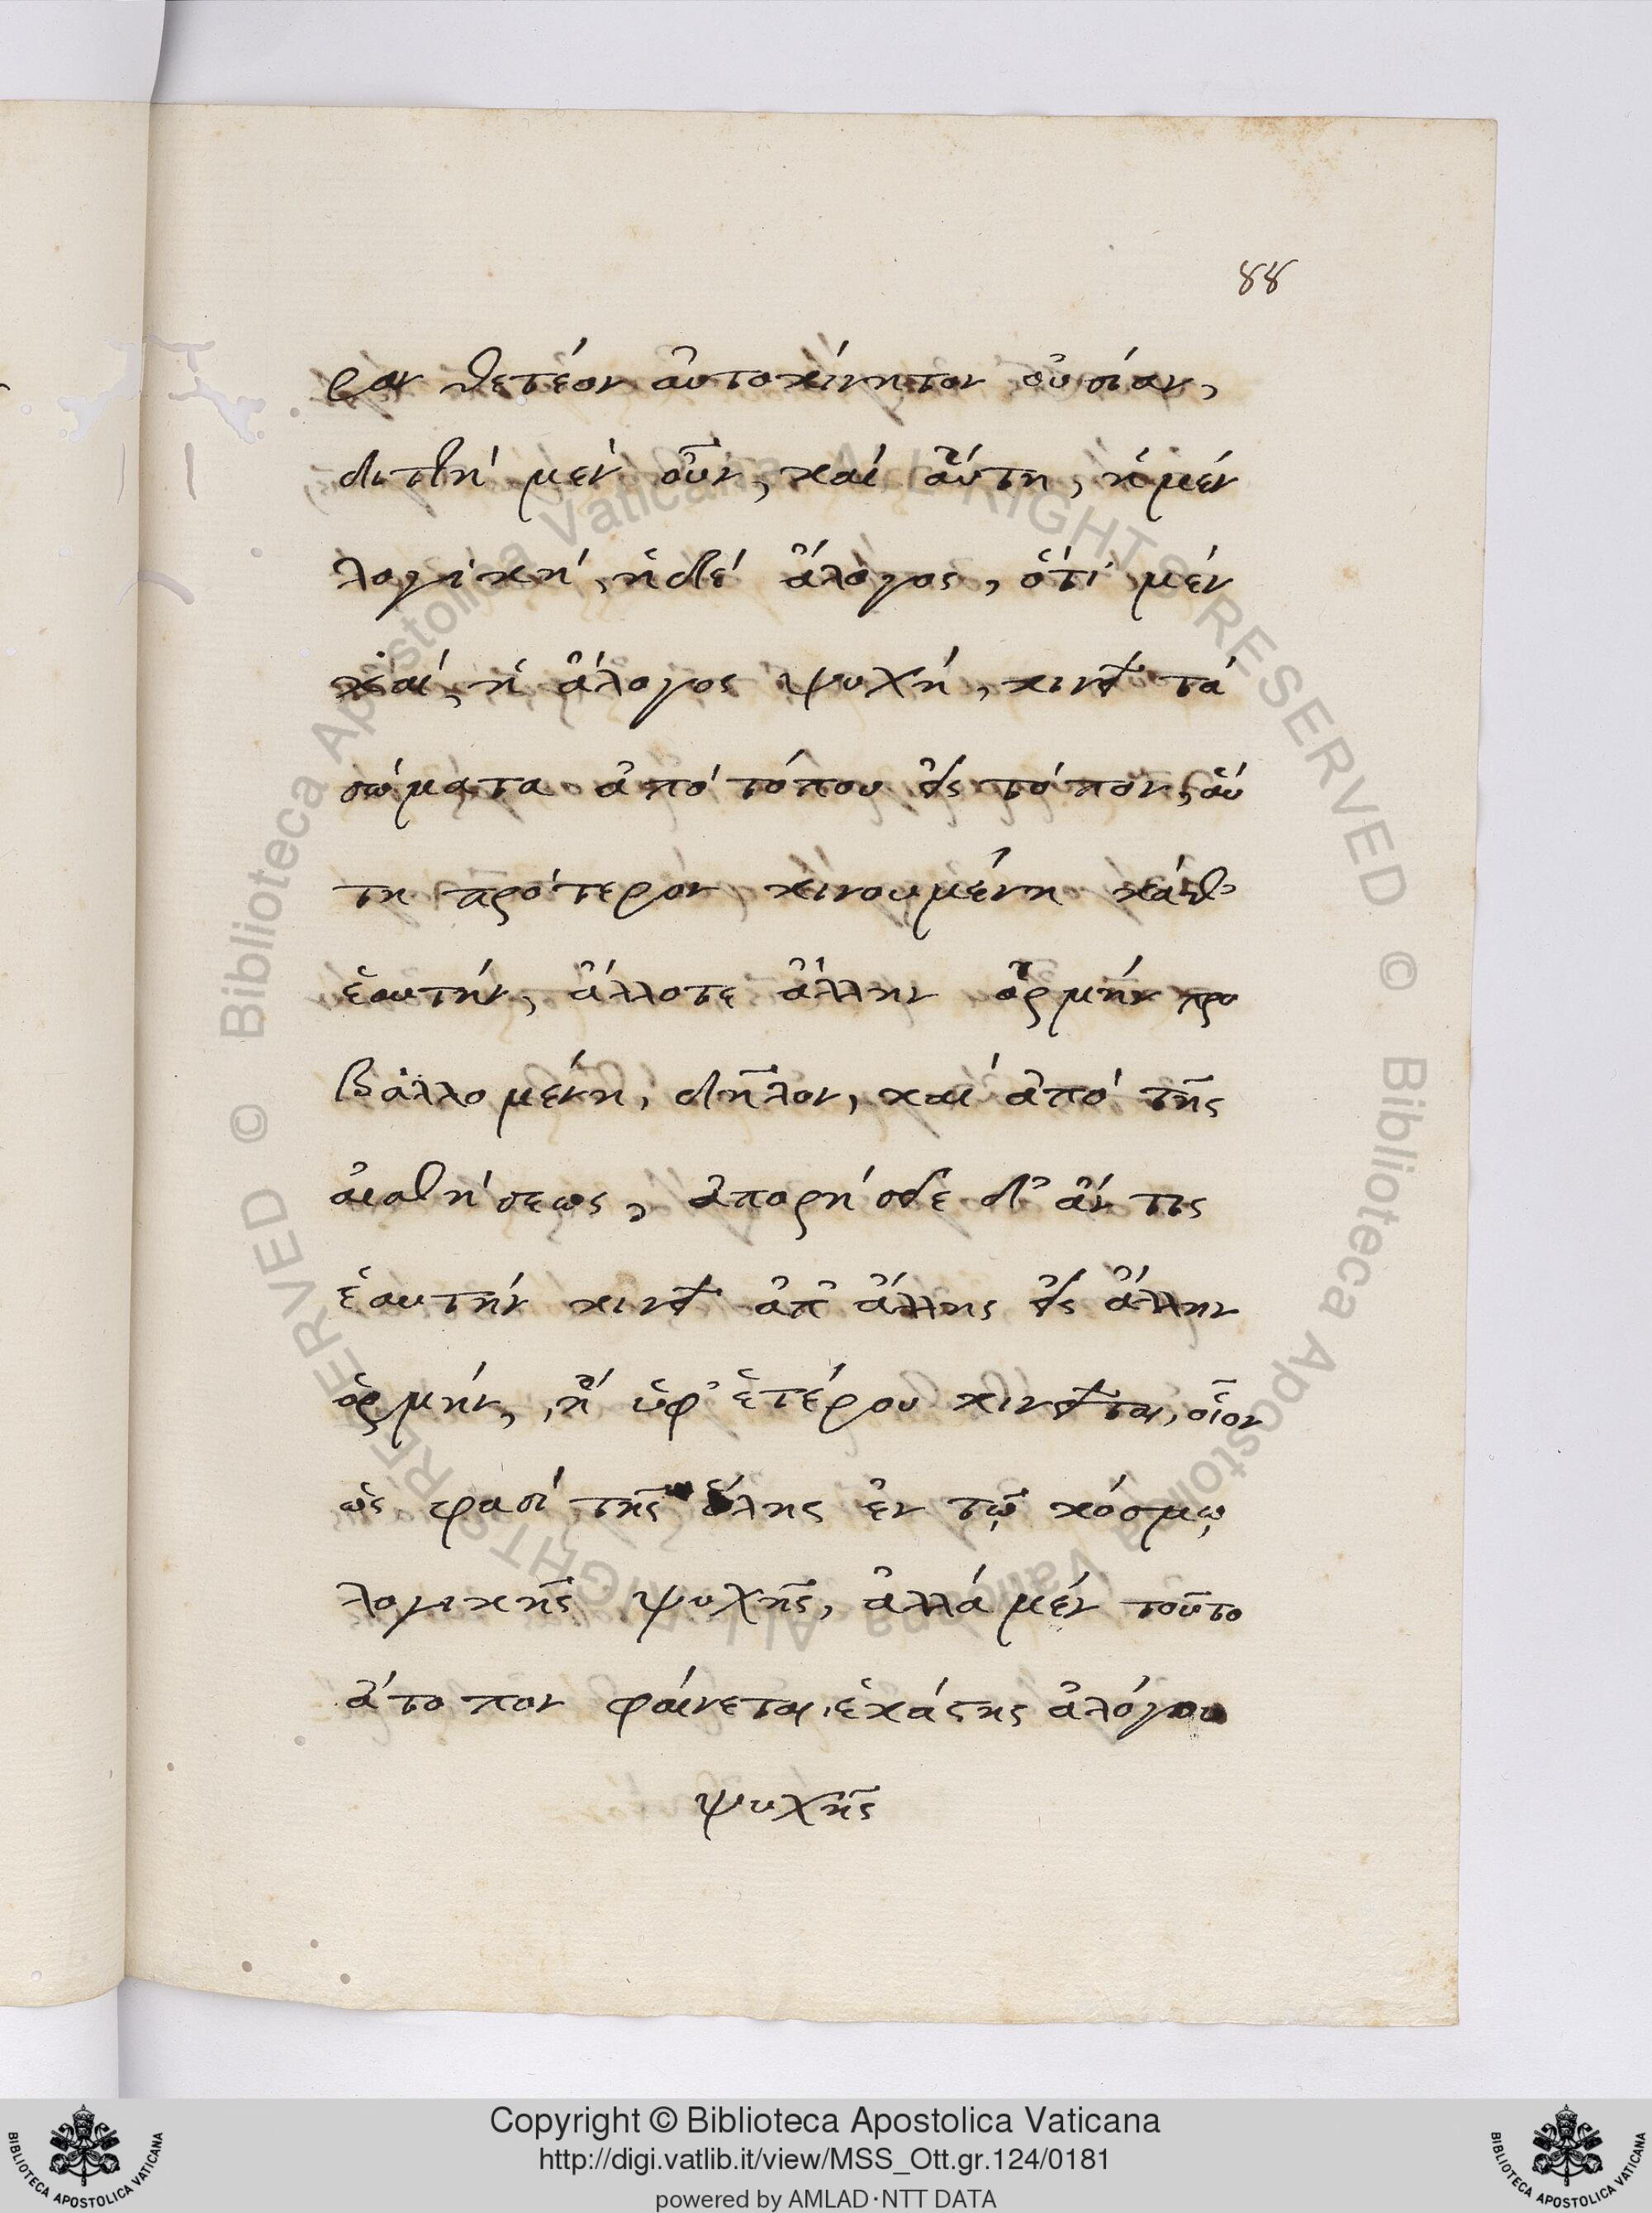 88
ραν θετέον αὐτοκίνητον οὐσίαν,
διττὴ μὲν οὖν, καὶ αὕτη, ἡ μὲν
λογικὴ, ἡ δὲ ἄλογος, ὅτι μὲν
καὶ ἡ ἄλογος ψυχὴ, κινεῖ τὰ
σώματα ἀπὸ τόπου εἰς τόπον, αὐ
τὴ πρότερον κινουμένη καθ’
ἑαυτήν, ἄλλοτε ἄλλην ὁρμὴν προ
βαλλομένη, δῆλον, καὶ ἀπὸ τῆς
αἰσθήσεως, ἀπορήσειε δ’ ἄν τις
ἑαυτὴν κινεῖ ἀπ’ ἄλλης εἰς ἄλλην
ὁρμήν, ἢ ὑφ’ ἑτέρου κινεῖται, οἷον
ὥς φασὶ τῆς ὅλης ἐν τῷ κόσμῳ
λογικῆς ψυχῆς, ἀλλὰ μὲν τοῦτο
ἄτοπον φαίνεται, ἑκάστης ἀλόγου
ψυχῆς
© Biblioteca Apostolica Vaticana ALL RIGHTS RESERVED
© Biblioteca Apostolica Vaticana ALL RIGHTS RESERVED
BIBLIOTECA APOSTOLICA VATICANA
Copyright © Biblioteca Apostolica Vaticana
http://digi.vatlib.it/view/MSS_Ott.gr.124/0181
powered by AMLAD·NTT DATA
BIBLIOTECA APOSTOLICA VATICANA